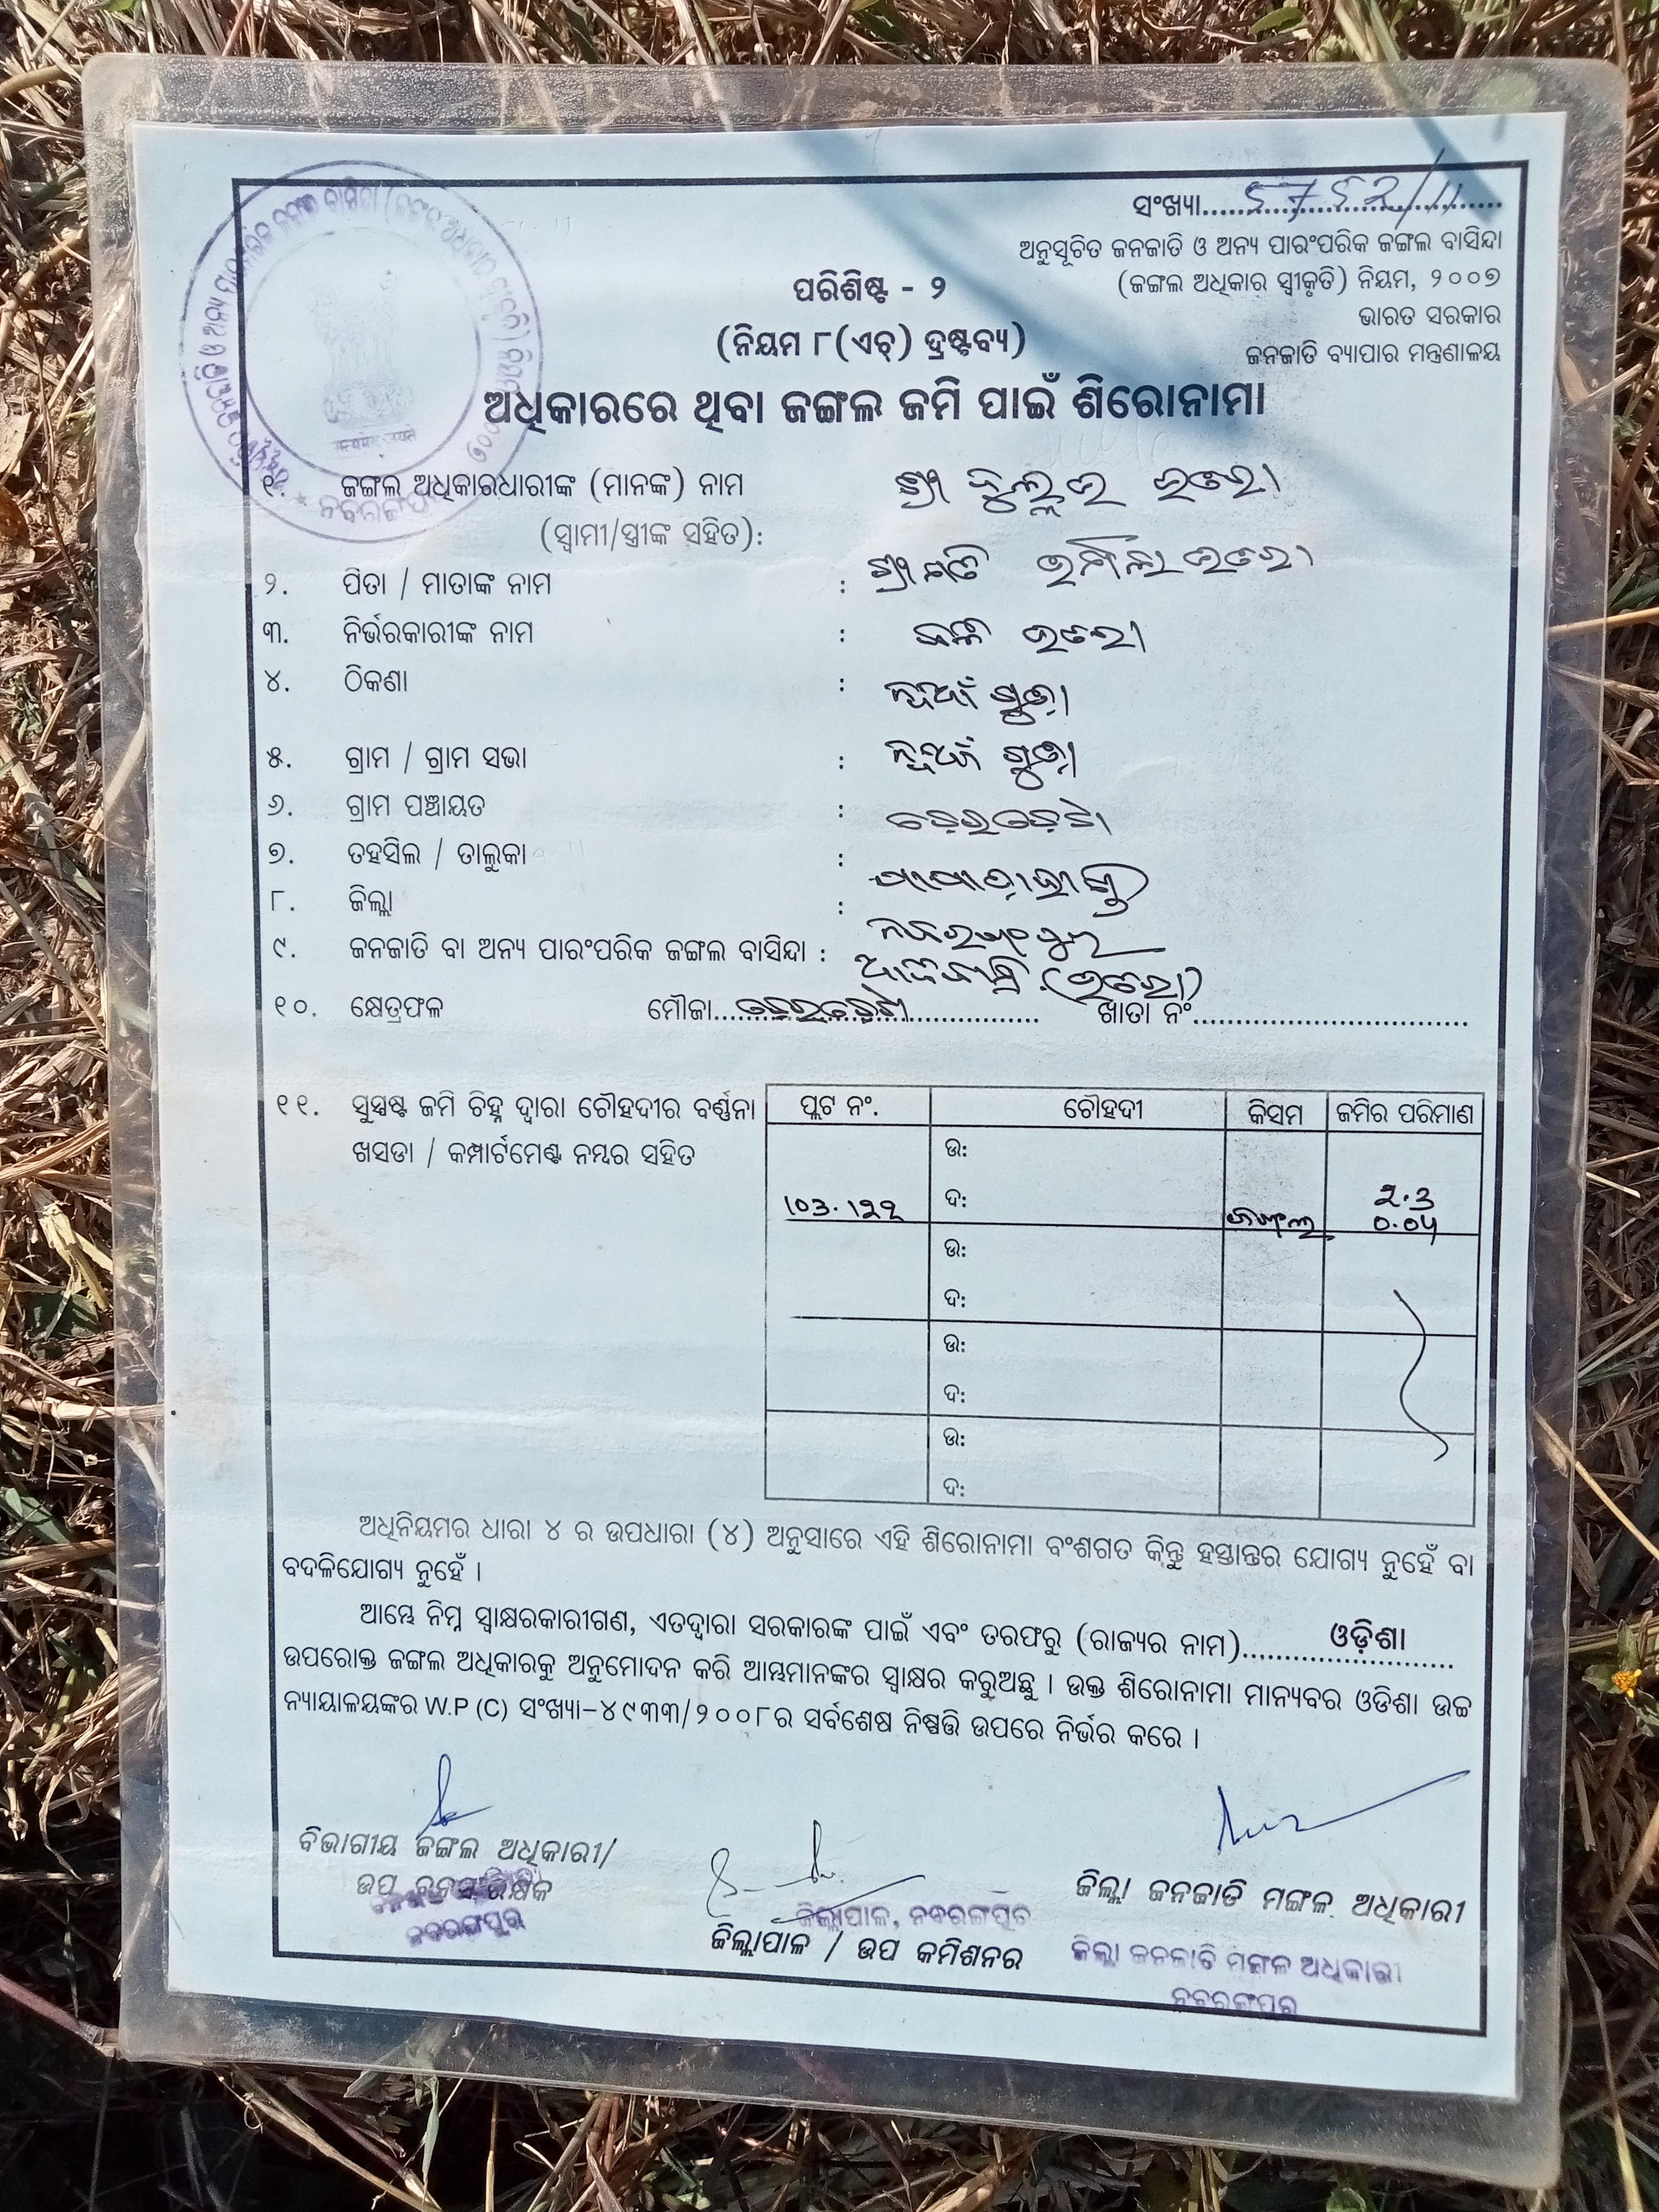 ସଂଖ୍ୟା.......5752/11
ଅନୁସୂଚିତ ଜନଜାତି ଓ ଅନ୍ୟ ପାରଂପରିକ ଜଙ୍ଗଲ ବାସିନ୍ଦା
(ଜଙ୍ଗଲ ଅଧିକାର ସ୍ୱୀକୃତି) ନିୟମ, ୨୦୦୭
ଭାରତ ସରକାର
ଜନଜାତି ବ୍ୟାପାର ମନ୍ତ୍ରଣାଳୟ
ପରିଶିଷ୍ଟ - ୨
(ନିୟମ ୮(ଏଚ୍) ଦ୍ରଷ୍ଟବ୍ୟ)
ଅଧିକାରରେ ଥିବା ଜଙ୍ଗଲ ଜମି ପାଇଁ ଶିରୋନାମା
୧. ଜଙ୍ଗଲ ଅଧିକାରଧାରୀଙ୍କ (ମାନଙ୍କ) ନାମ
(ସ୍ୱାମୀ/ସ୍ତ୍ରୀଙ୍କ ସହିତ):
୨. ପିତା / ମାତାଙ୍କ ନାମ :
୩. ନିର୍ଭରକାରୀଙ୍କ ନାମ :
୪. ଠିକଣା : ନୂଆଁ ଗୁଡ଼ା
୫. ଗ୍ରାମ / ଗ୍ରାମ ସଭା : ନୂଆଁ ଗୁଡ଼ା
୬. ଗ୍ରାମ ପଞ୍ଚାୟତ :
୭. ତହସିଲ / ତାଲୁକା : ପାପାଡ଼ାହାଣ୍ଡି
୮. ଜିଲ୍ଲା : ନବରଙ୍ଗପୁର
୯. ଜନଜାତି ବା ଅନ୍ୟ ପାରଂପରିକ ଜଙ୍ଗଲ ବାସିନ୍ଦା : ଆଦିବାସୀ (ଭତରା)
୧୦. କ୍ଷେତ୍ରଫଳ ମୌଜା....... ଖାତା ନଂ.......
୧୧. ସୁସ୍ପଷ୍ଟ ଜମି ଚିହ୍ନ ଦ୍ୱାରା ଚୌହଦୀର ବର୍ଣ୍ଣନା
ଖସଡା / କମ୍ପାର୍ଟମେଣ୍ଟ ନମ୍ବର ସହିତ
ପ୍ଲଟ ନଂ. ଚୌହଦୀ କିସମ ଜମିର ପରିମାଣ
ଉ:
ଦ: 2.3
103.122 ଜଙ୍ଗଲ 0.04
ଉ:
ଦ:
ଉ:
ଦ:
ଉ:
ଦ:
ଅଧିନିୟମର ଧାରା ୪ ର ଉପଧାରା (୪) ଅନୁସାରେ ଏହି ଶିରୋନାମା ବଂଶଗତ କିନ୍ତୁ ହସ୍ତାନ୍ତର ଯୋଗ୍ୟ ନୁହେଁ ବା
ବଦଳିଯୋଗ୍ୟ ନୁହେଁ ।
ଆମ୍ଭେ ନିମ୍ନ ସ୍ୱାକ୍ଷରକାରୀଗଣ, ଏତଦ୍ୱାରା ସରକାରଙ୍କ ପାଇଁ ଏବଂ ତରଫରୁ (ରାଜ୍ୟର ନାମ).......ଓଡ଼ିଶା.......
ଉପରୋକ୍ତ ଜଙ୍ଗଲ ଅଧିକାରକୁ ଅନୁମୋଦନ କରି ଆମ୍ଭମାନଙ୍କର ସ୍ୱାକ୍ଷର କରୁଅଛୁ । ଉକ୍ତ ଶିରୋନାମା ମାନ୍ୟବର ଓଡିଶା ଉଚ୍ଚ
ନ୍ୟାୟାଳୟଙ୍କର W.P (C) ସଂଖ୍ୟା-୪୯୩୩/୨୦୦୮ର ସର୍ବଶେଷ ନିଷ୍ପତ୍ତି ଉପରେ ନିର୍ଭର କରେ ।
ବିଭାଗୀୟ ଜଙ୍ଗଲ ଅଧିକାରୀ/
ନବରଙ୍ଗପୁର
ଜିଲ୍ଲାପାଳ, ନବରଙ୍ଗପୁର
ଜିଲ୍ଲାପାଳ / ଉପ କମିଶନର
ଜିଲ୍ଲା ଜନଜାତି ମଙ୍ଗଳ ଅଧିକାରୀ
ଜିଲ୍ଲା ଜନଜାତି ମଙ୍ଗଳ ଅଧିକାରୀ
ନବରଙ୍ଗପୁର